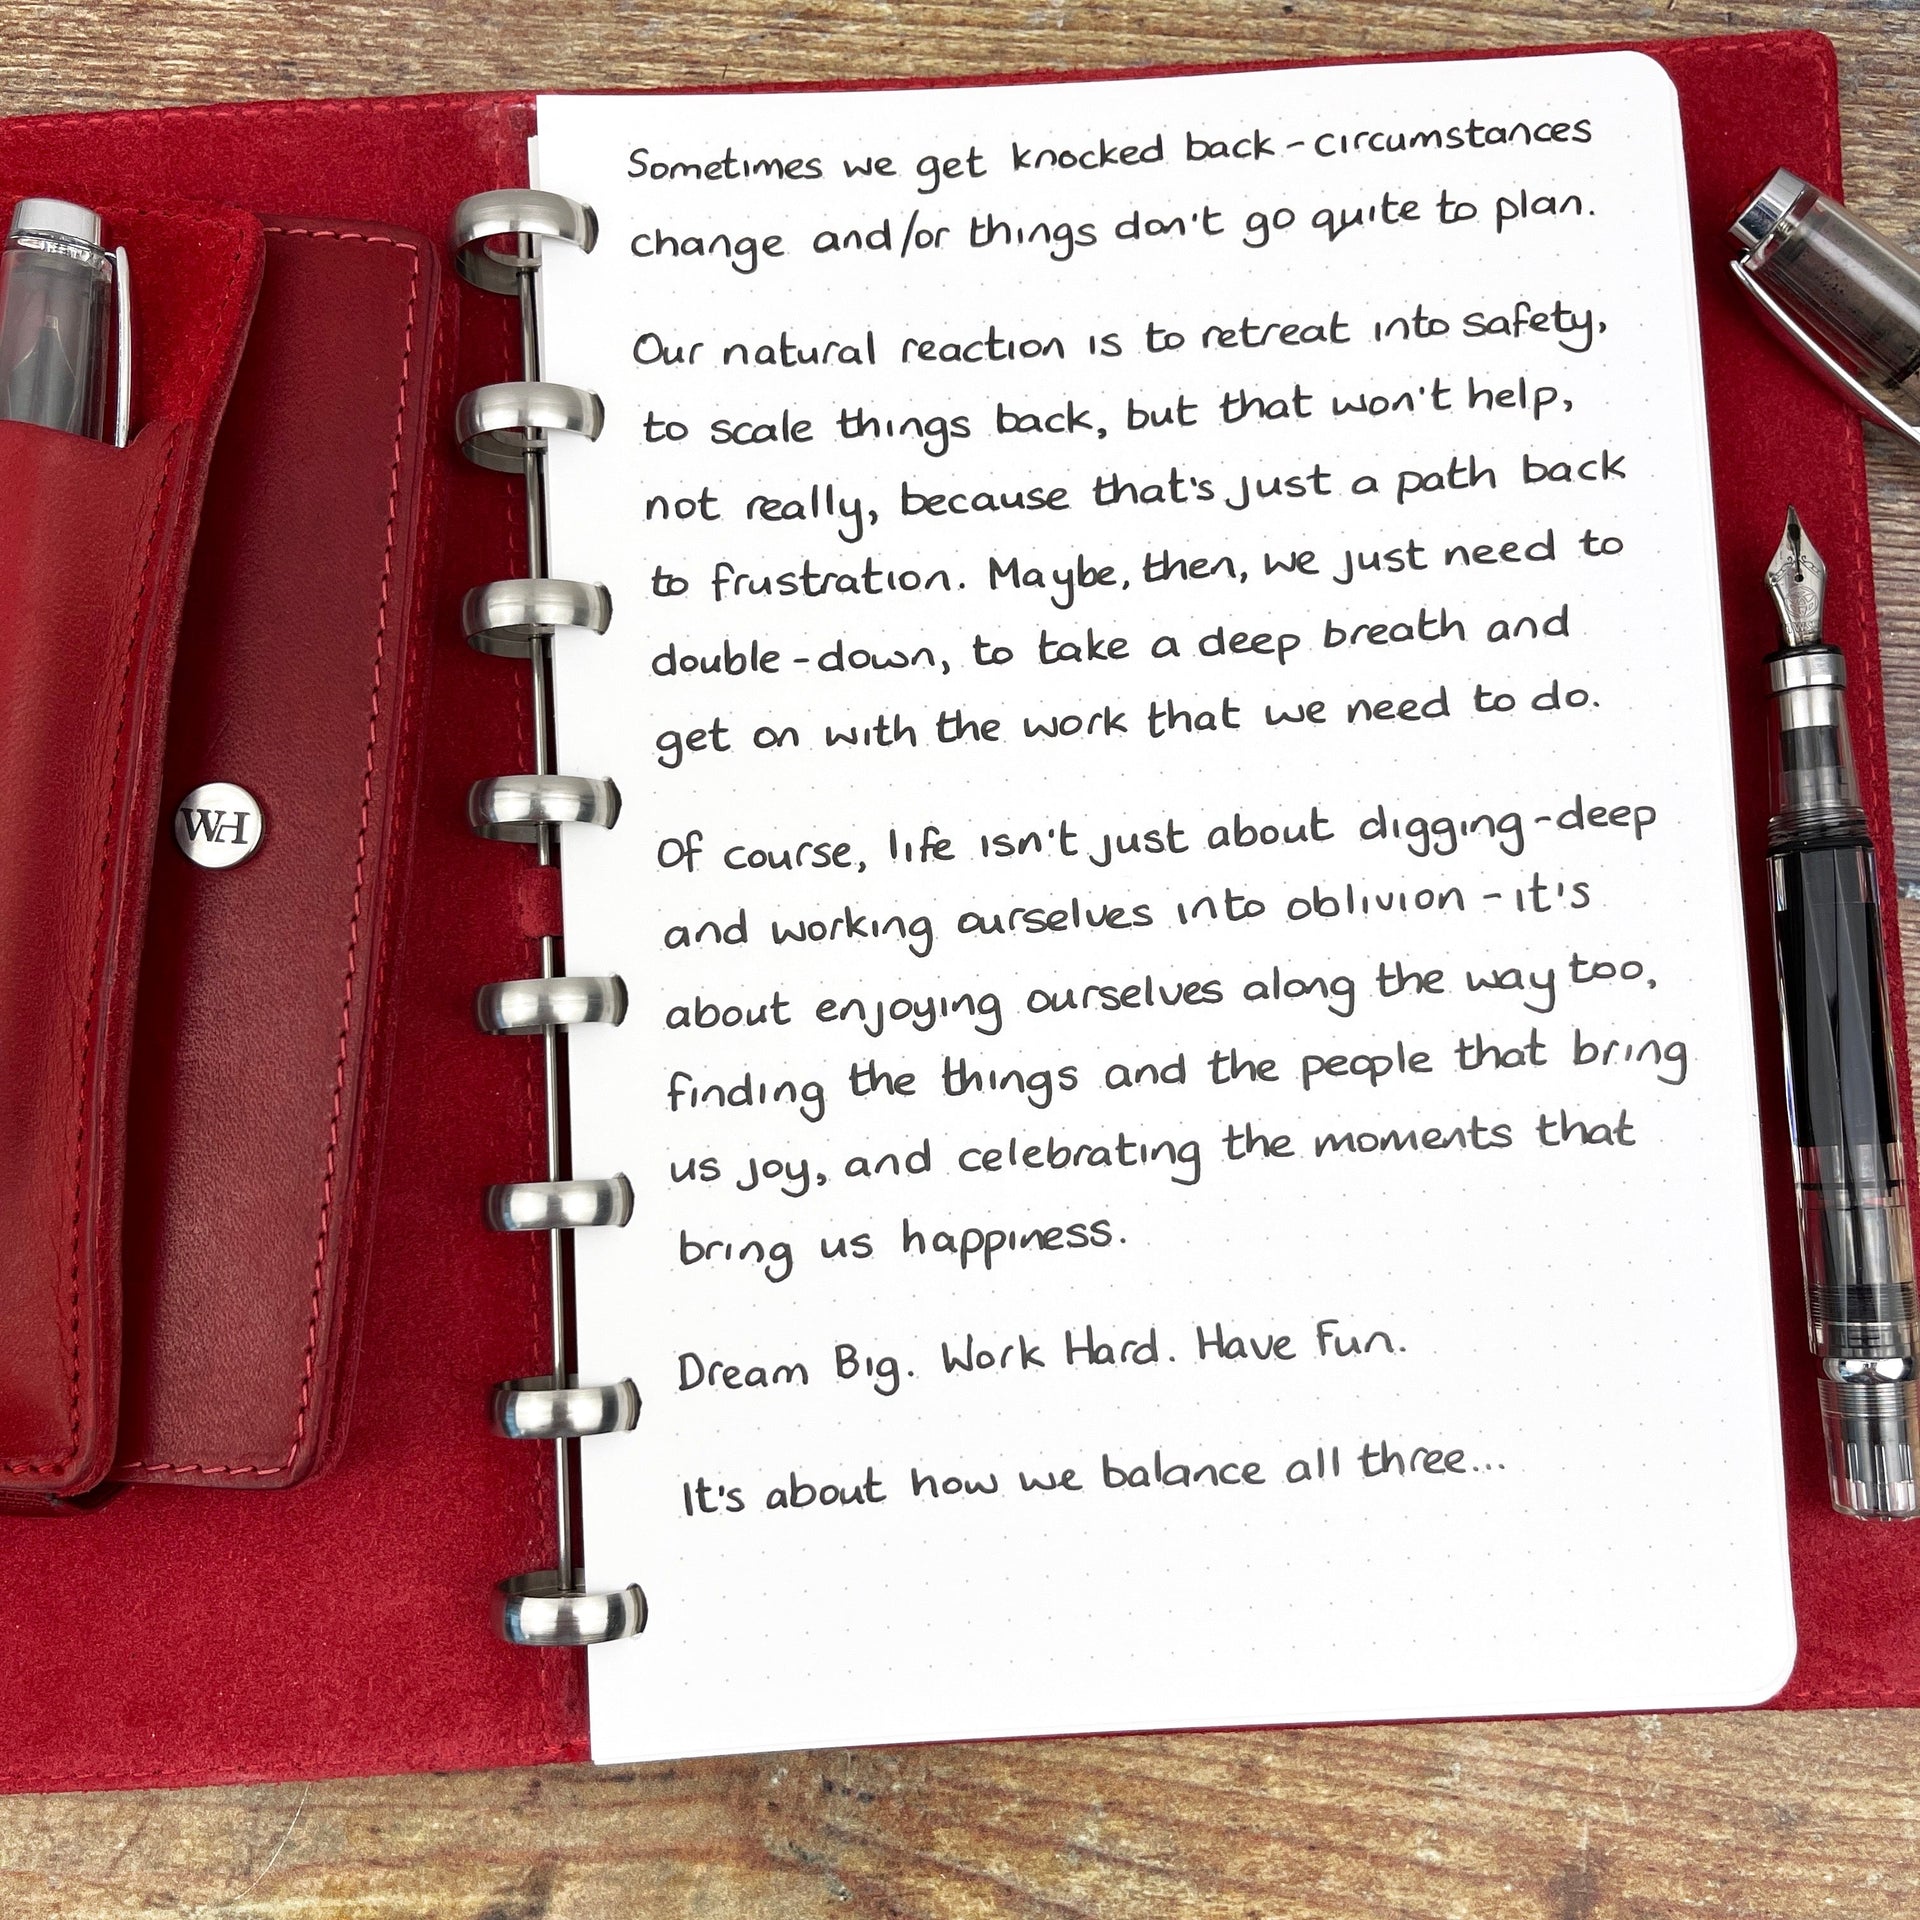 Sometimes we get knocked back - circumstances
change and/or things don't go quite to plan.
Our natural reaction is to retreat into safety,
to scale things back, but that won't help,
not really, because that's just a path back
to frustration. Maybe, then, we just need to
double-down, to take a deep breath and
get on with the work that we need to do.
Of course, life isn't just about digging-deep
and working ourselves into oblivion - it's
about enjoying ourselves along the way too,
finding the things and the people that bring
us joy, and celebrating the moments that
bring us happiness.
Dream Big. Work Hard. Have Fun.
It's about how we balance all three...
WH